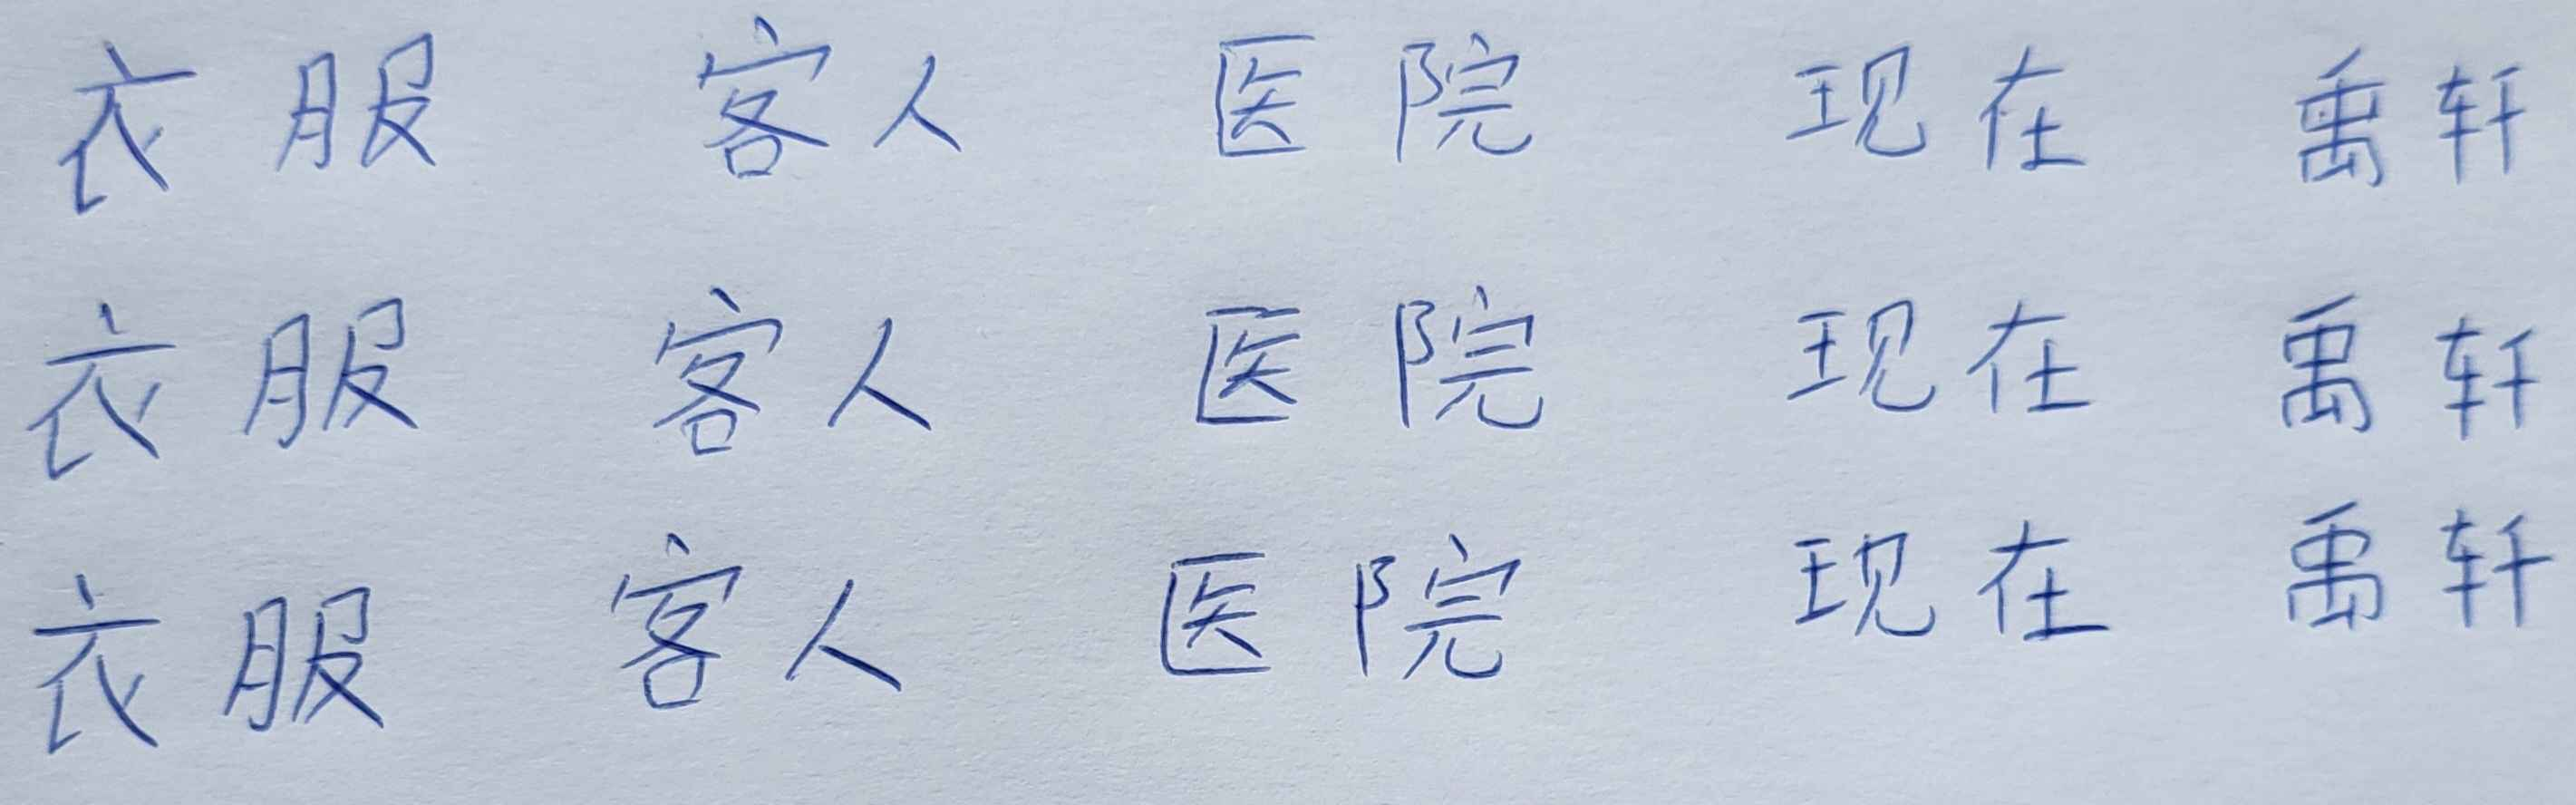 衣服 客人 医院 现在 禹轩
衣服 客人 医院 现在 禹轩
衣服 客人 医院 现在 禹轩